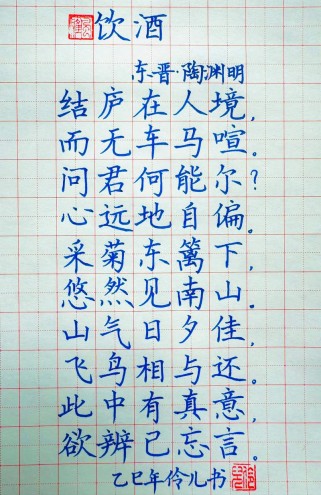 饮酒
东晋·陶渊明
结庐在人境，
而无车马喧。
问君何能尔？
心远地自偏。
采菊东篱下，
悠然见南山。
山气日夕佳，
飞鸟相与还。
此中有真意，
欲辨已忘言。
乙巳年伶儿书